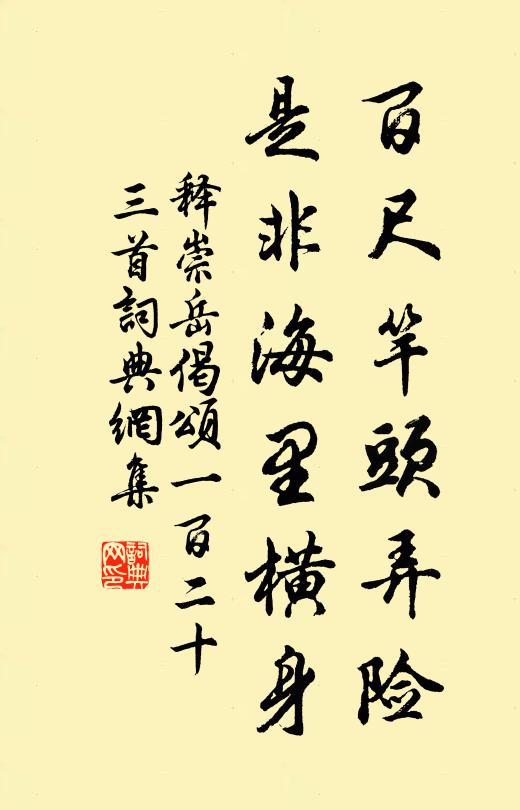 百尺竿頭弄险
是非海里横身
释崇岳偈頌一百二十
三首詞典網集
詞典网印